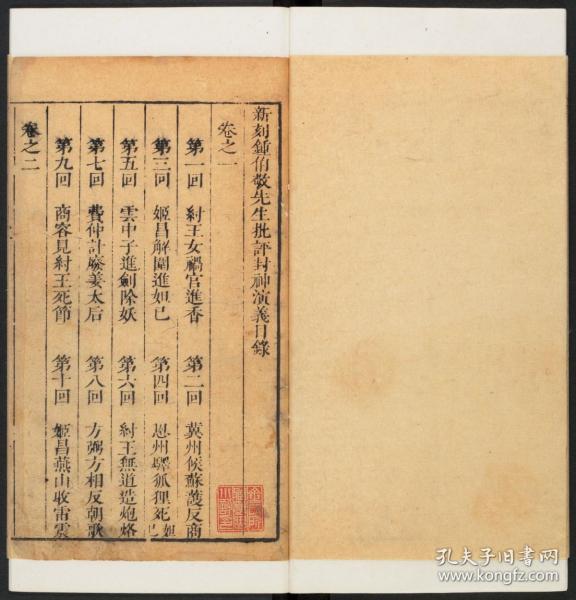 新刻鍾伯敬先生批評封神演義目錄
卷之一
第一回 紂王女禍宮進香 第二回 冀州侯蘇護反商
第三回 姬昌解圍進妲己 第四回 恩州驛狐狸死妲己
第五回 雲中子進劍除妖 第六回 紂王無道造炮烙
第七回 費仲計廢姜太后 第八回 方弼方相反朝歌
第九回 商容見紂王死節 第十回 姬昌燕山收雷震
卷之二
孔夫子旧书网
www.kongfz.com